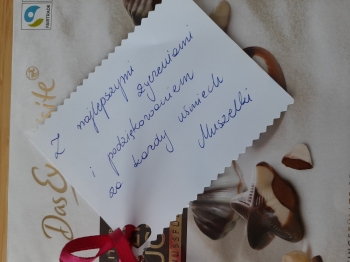 FAIRTRADE
Das Exquisite
®
Z najlepszymi
życzeniami
i podziękowaniem
za każdy uśmiech
Muszelki